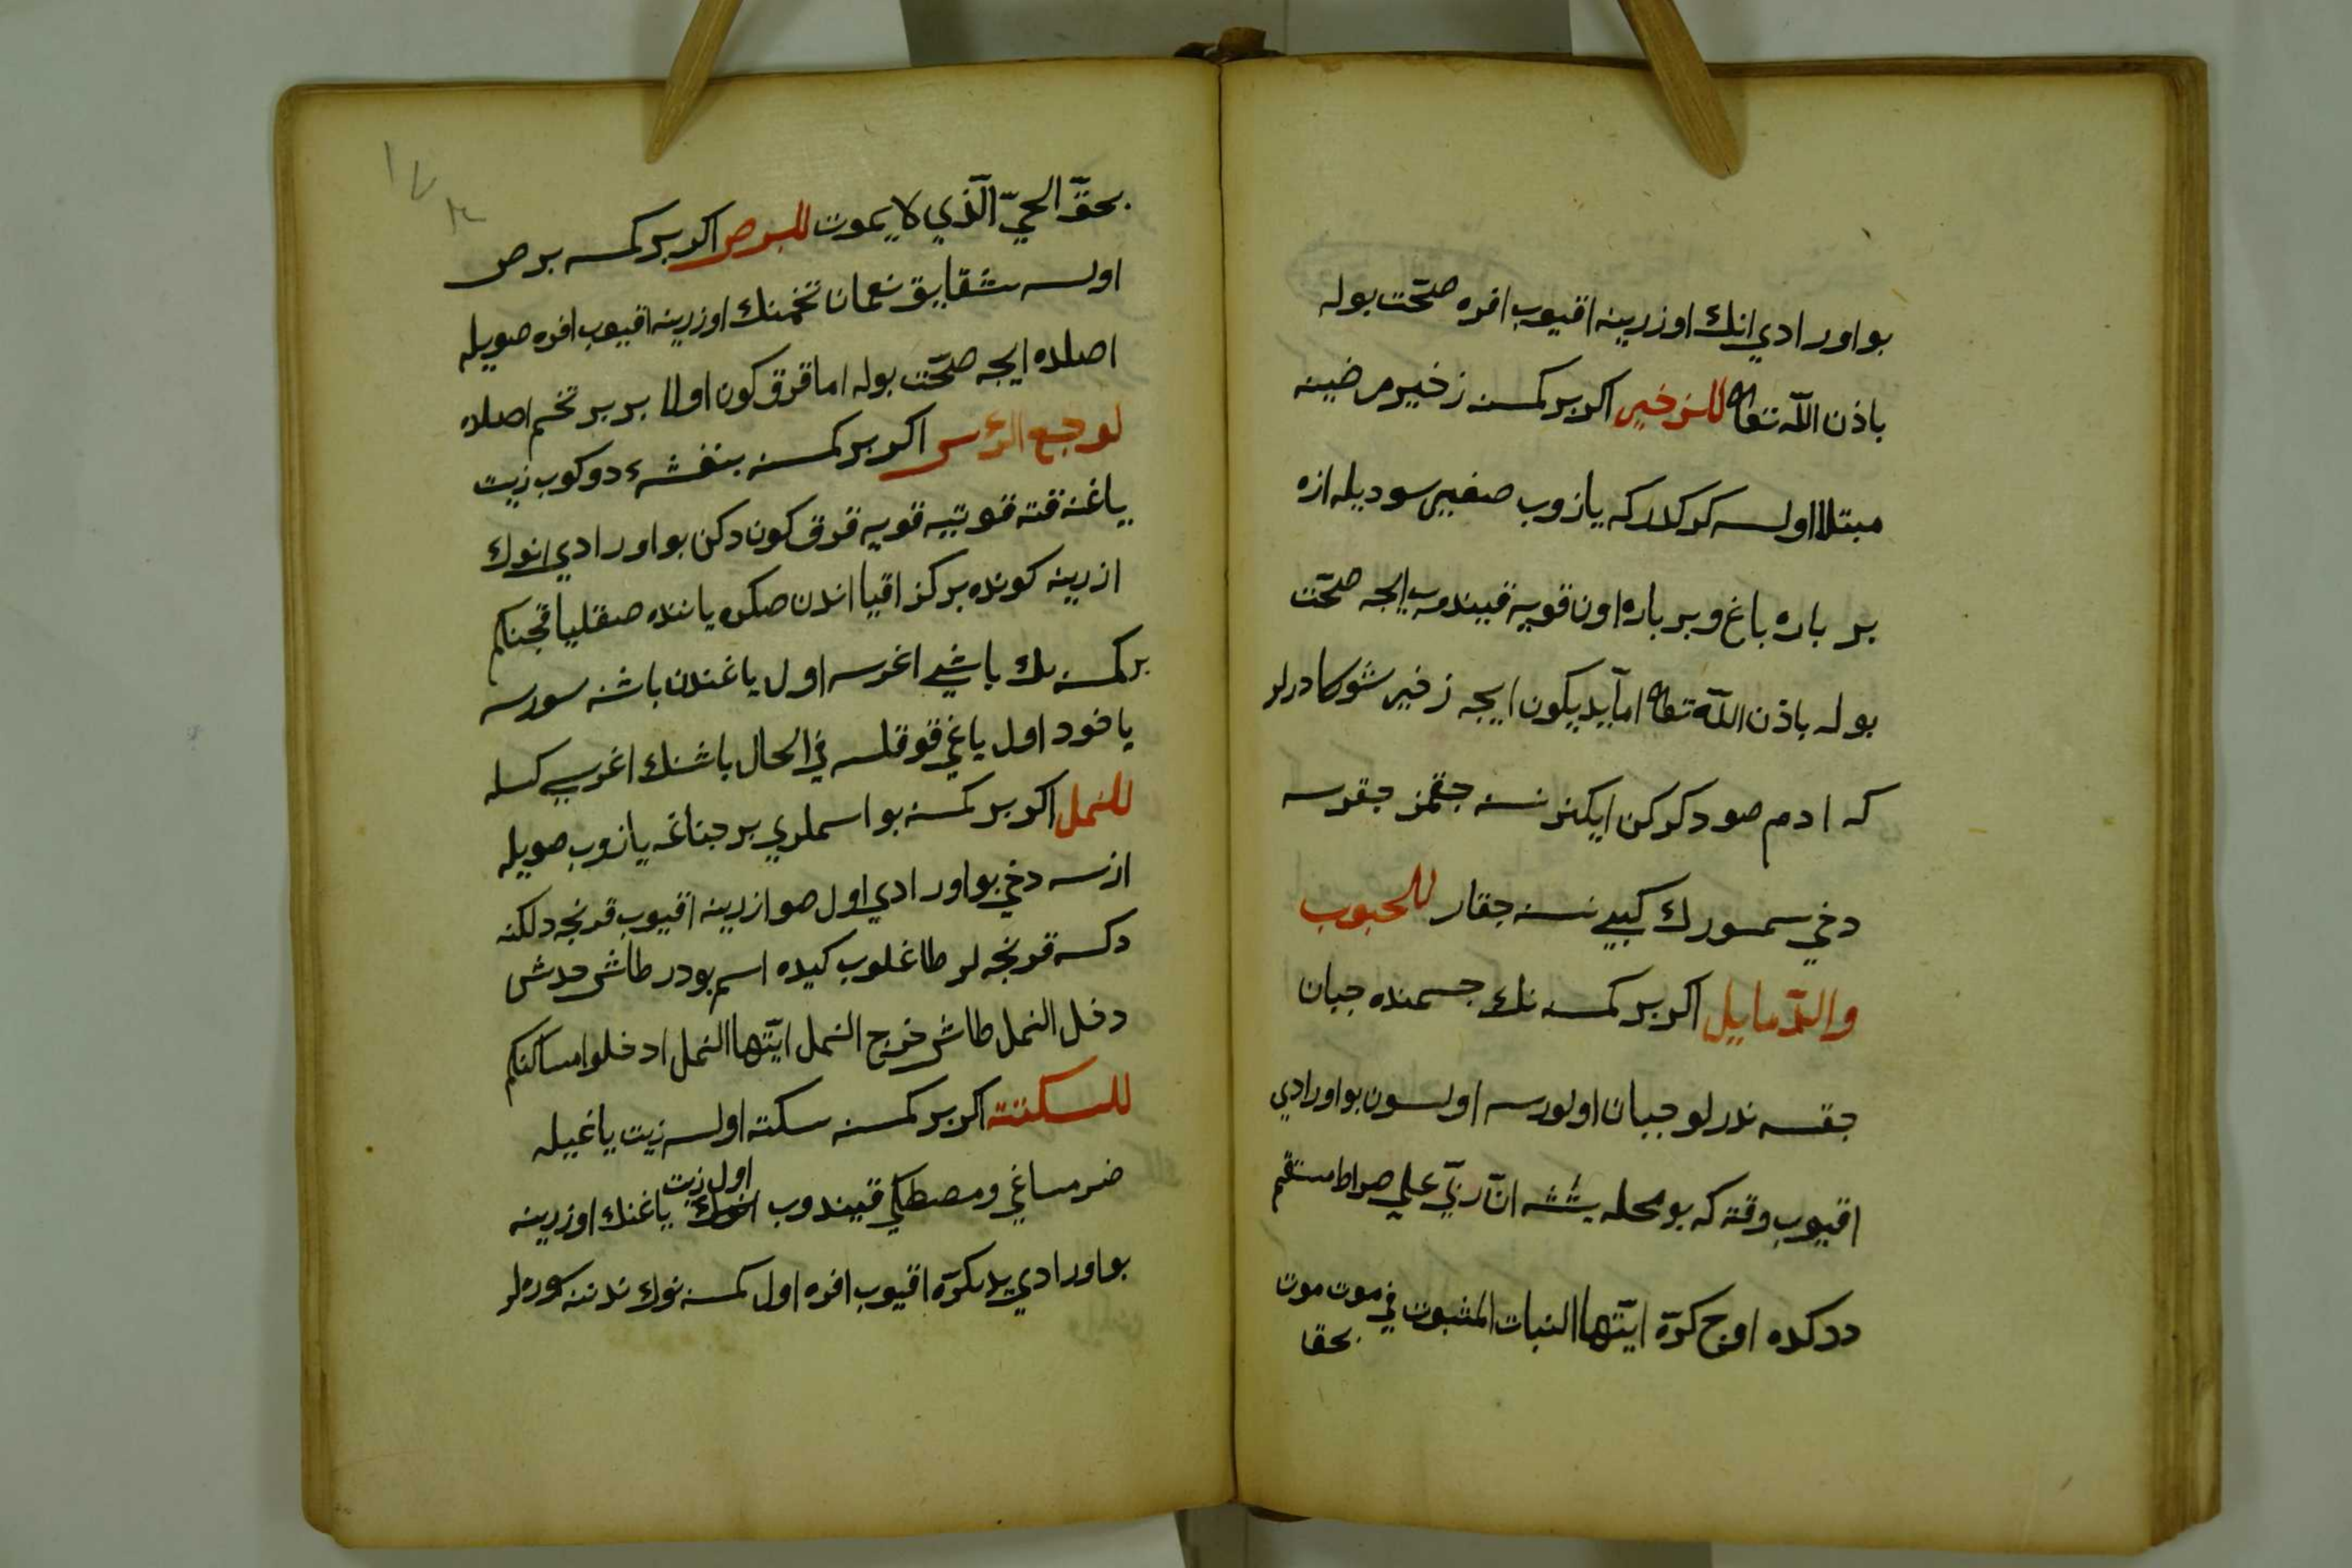 بو اورادي انك اوزرينه اقيوب افره صحّت بوله
باذن اللّه تعالى للزخير اكر بر كمسنه زخير مرضينه
مبتلا اولسه كركدر كه يازوب صغير سوديله ازه
بر باره ياغ و بر باره اون قويه قيندوب ايجه صحّت
بوله باذن اللّه تعالى امّا يدي كون ايجه زخير شوكا درلر
كه ادم صو دكركن ايكنر نسنه جقمز جقرسه
دخي سمورك كبي نسنه جقار للحبوب
والدّمايل اكر بر كمسه نك جسمنده جبان
جقسه ندرلو جبان اولورسه اولسون بو اورادي
اقيوب وقته كه بو محله يتشه انّ ربّي علي صراط مستقيم
ددكده اوج كرّه ايّتها النبات المثبوت في موت موت
بحق
بحقّ الحيّ الّذي لا يموت للبرص اكر بر كمسه برص
اولسه شقايق نعمان تخمنك اوزرينه اقيوب افره صويله
اصلده ايجه صحّت بوله اما قرق كون اولا بر بر تخم اصلاه
لوجع الرّس اكر بر كمسنه بنفشهء دوكوب زيت
ياغنه قته قوتيه قويه قرق كون دكن بو اورادي انوك
ازرينه كونده بر كز اقيا اندن صكره ياننده صقليا قجنكم
بر كمسنه نك باشي اغرسه اول ياغندن باشنه سورسه
ياخود اول ياغي قوقلسه في الحال باشنك اغريسي كسله
للنمل اكر بر كمسنه بو اسملري بر جناغه يازوب صويله
ازسه دخي بو اورادي اول صو ازرينه اقيوب قرنجه دلكنه
دكسه قرنجه لر طاغلوب كيده اسم بودر طاش حدش
دخل النمل طاش خرج النمل ايّتها النمل ادخلوا مساكنكم
للسكتة اكر بر كمسنه سكته اولسه زيت ياغيله
ضرمساغي و مصطكي قيندوب اول زيت ياغنك اوزرينه
بو اورادي يدي كرّه اقيوب افره اول كمسنه نوك تدننه سوره لر